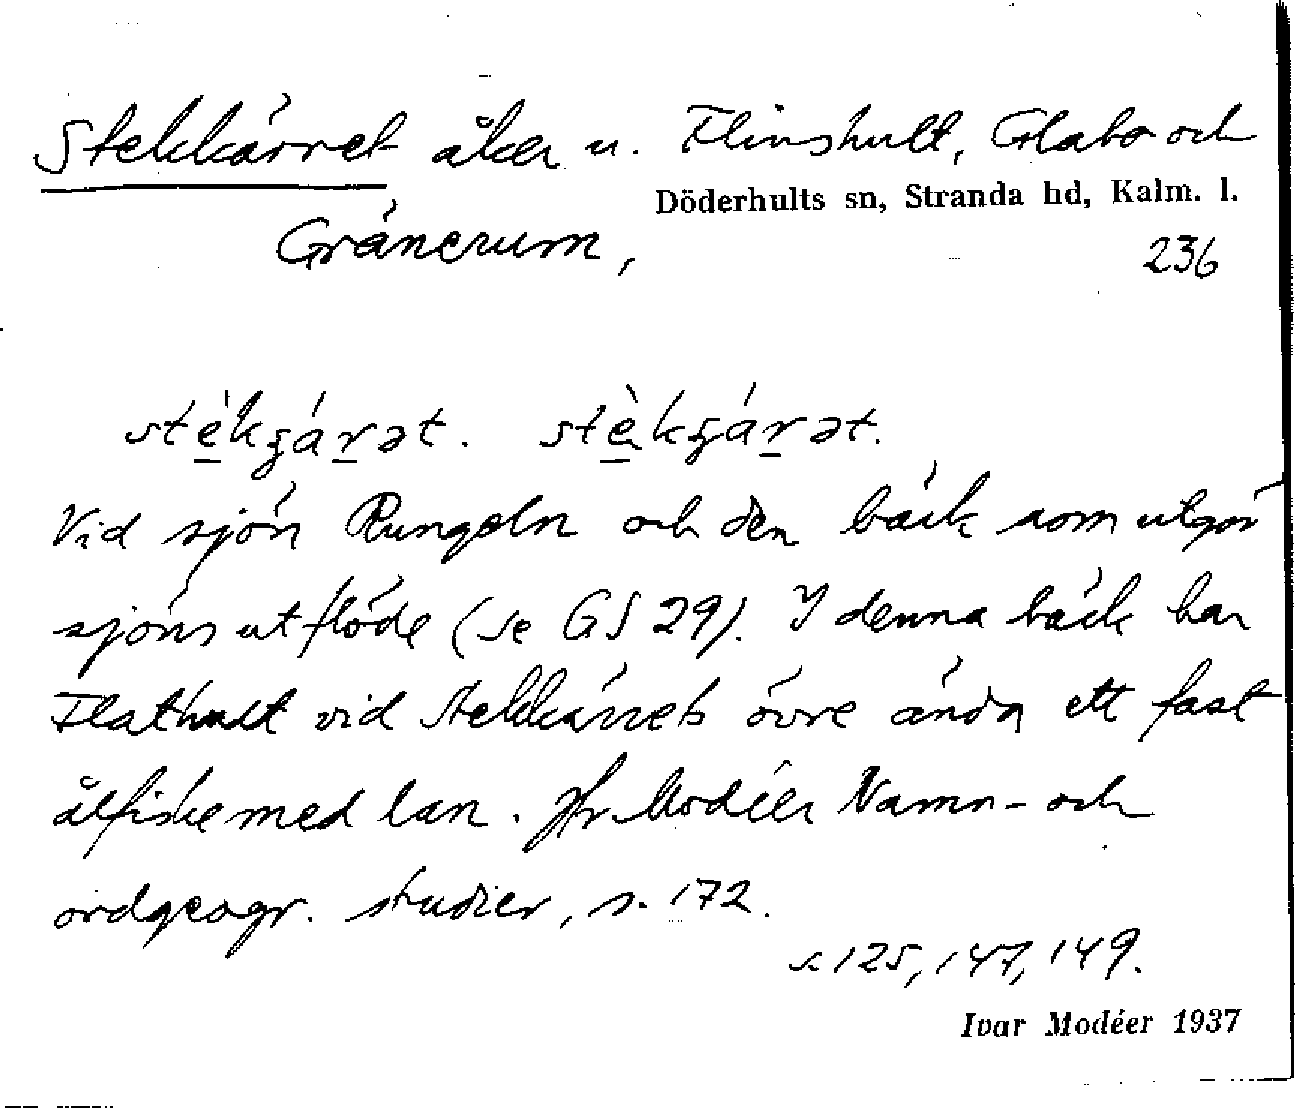 Stekkärret åker u. Flinshult, Glabo och
Döderhults sn, Stranda hd, Kalm. l.
Gränerum,
236
stékʒárət. stèkʒárət.
Vid sjön Rungeln och den bäck som utgör
sjöns utflöde (se GS 29). I denna bäck har
Flathult vid Stekkärrets övre ända ett fast
ålfiske med lan. Jfr Modéer Namn- och
ordgeogr. studier, s. 172.
s. 125, 147, 149.
Ivar Modéer 1937